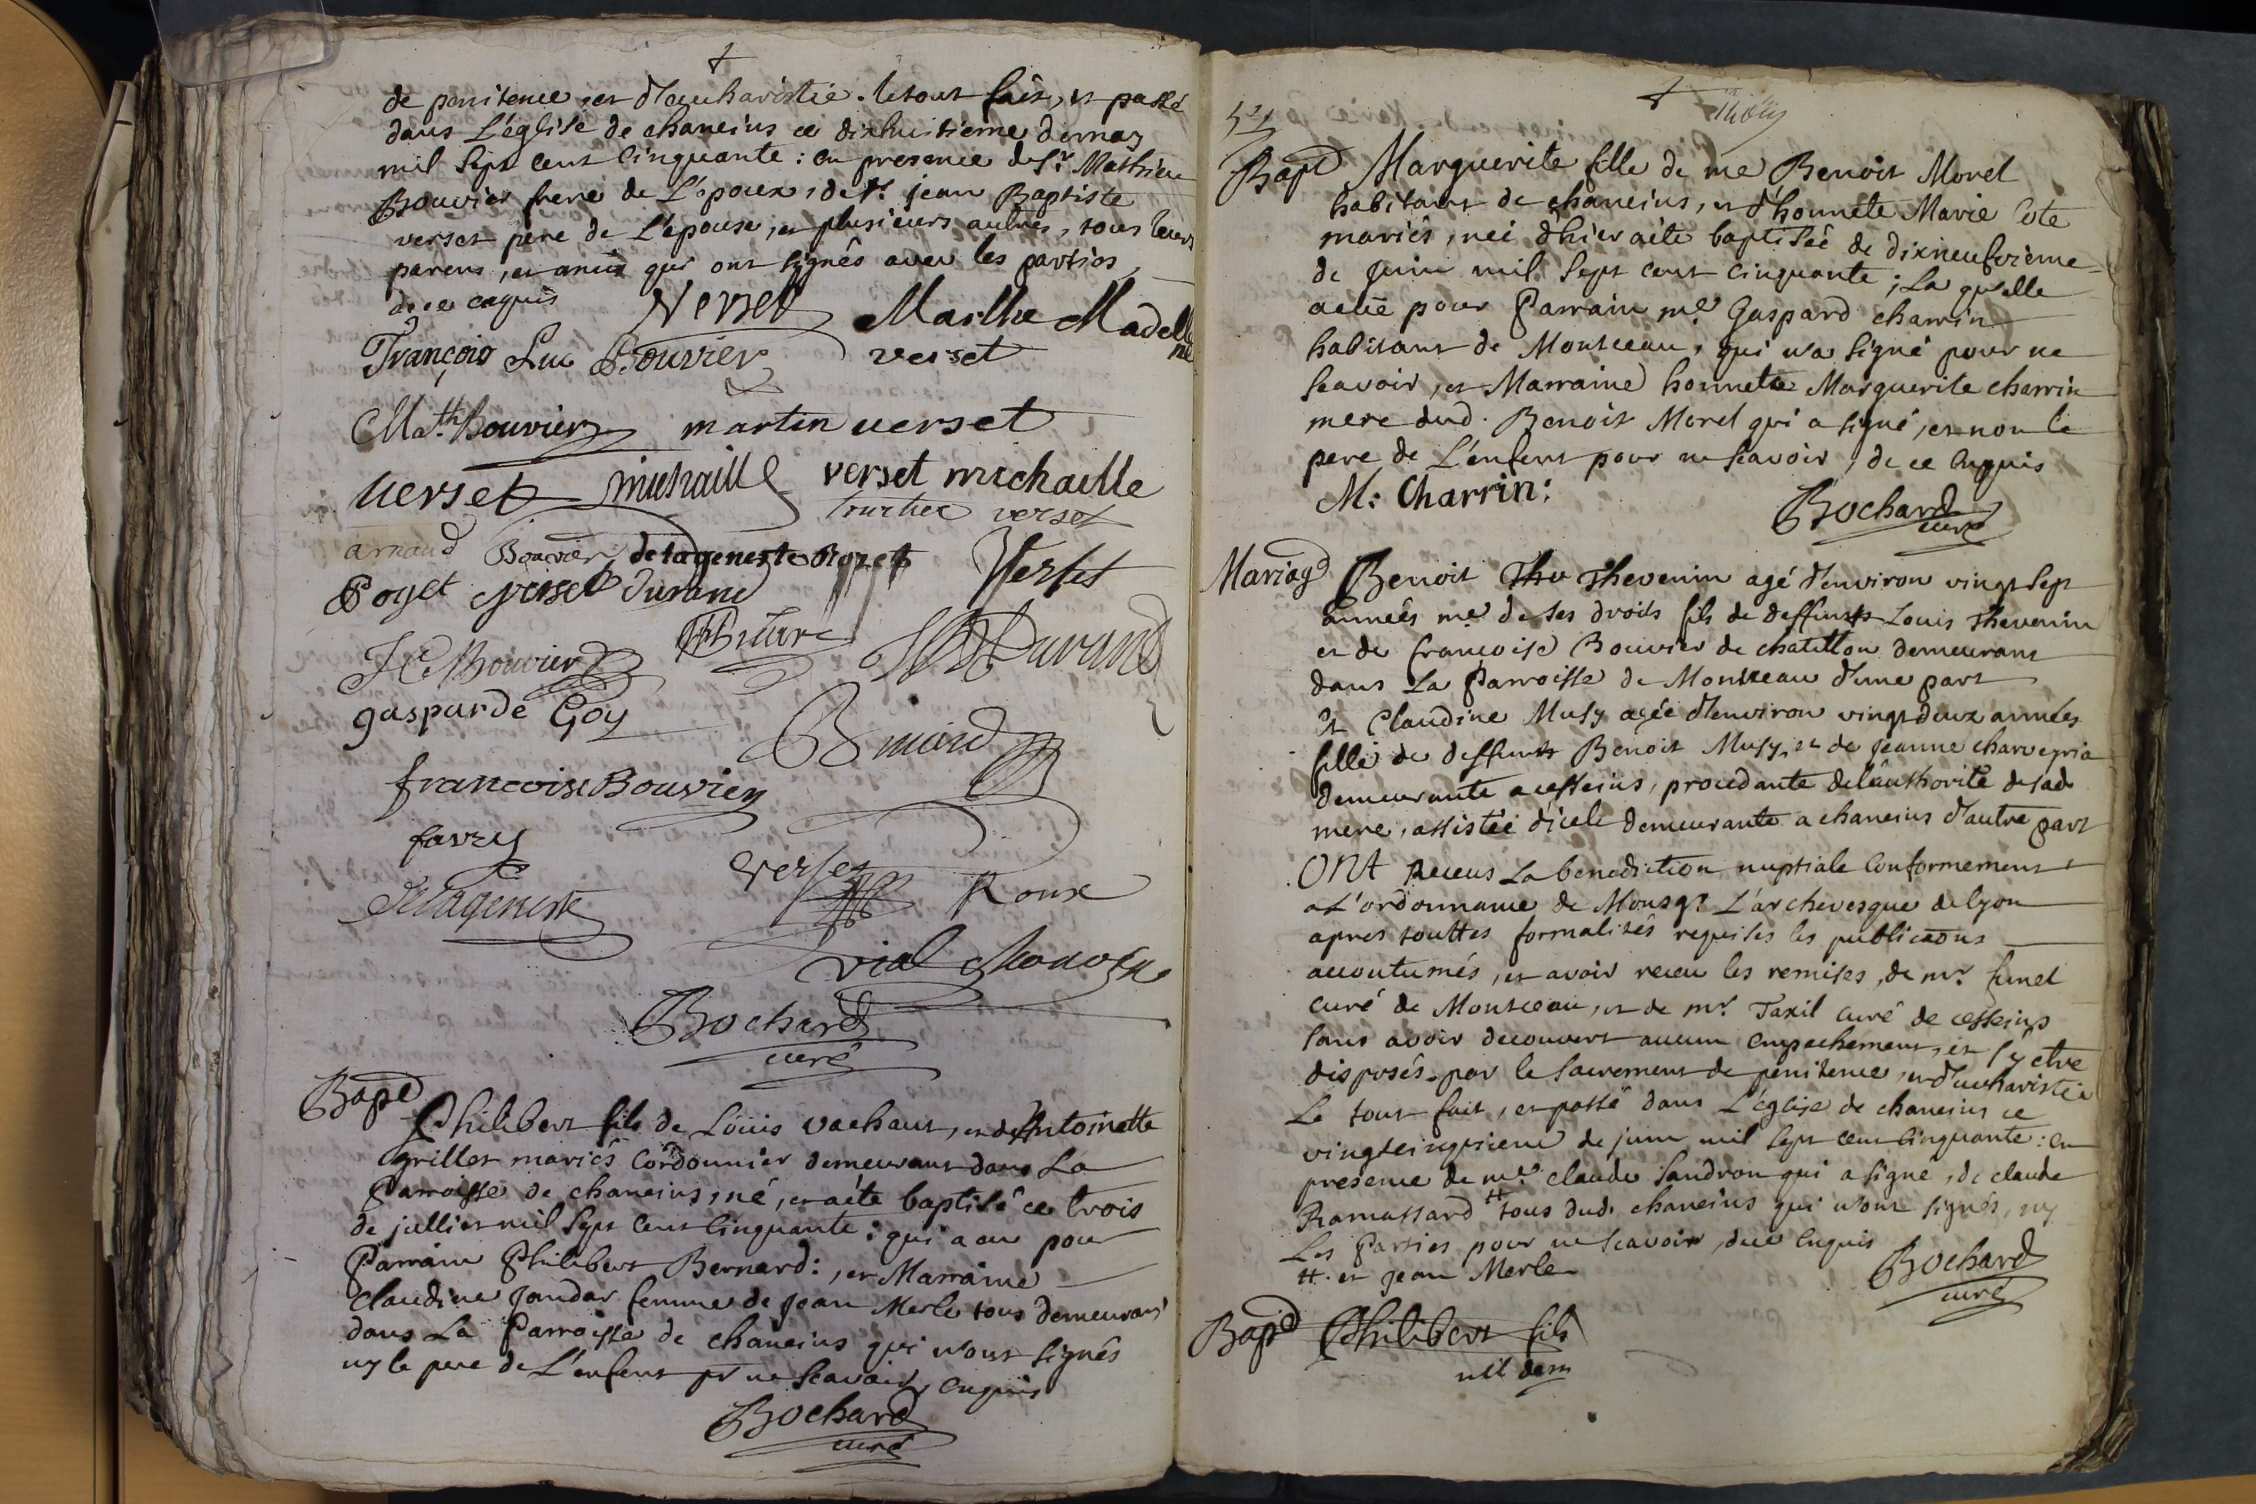 de penitence, et d'legucharistie. le tout fait, et passé
dans L'église de chaneins ce dixhuitieme dumay
mil sept cent Cinquante : en presence de Sr. Mathieu
Bouvier frere de L'epoux, de Sr. jean Baptiste
verset pere de L'épouse, et plusieurs autres, tous leurs
parens, et amis qui ont signés avec les parties
de ce enquis
Verset Marthe Madelle
ne
François Luc Bouvier verset
Math. Bouvier martin verset
verset michaille verset michaille
verset
arnaud Bouvier delageneste Rozet Verset
Poget verset durand
Bouvier Durand
gasparde Goy
francoise Bouvier
favre
verset Roux
delageneste
vial
Bochard
curé
Bapt
Philibert fils de Loüis vachaut, et de Antoinette
grillet mariés Cordonnier demeurant dans La
Parroisse de chaneins, né, et aéte baptisé ce trois
de juillet mil sept Cent Cinquante : qui a au pour
Parrain Philibert Bernard : , et Marraine
Claudine Jandar femme de Jean Merle tous demeurans
dans La Parroisse de chaneins qui n'ont signés
ny le pere de L'enfent pr ne Scavoir, enquis
Bochard
curé
Bapt Marguerite fille de me Benoit Morel
habitant de chaneins, et d'honnete Marie Cote
mariés, neé d'hier aéte baptisée de dixneufvieme
de juin mil Sept cent Cinquante ; La quelle
aeüe pour Parrain me. Gaspard charrin
habitant de Montceau, qui n'a signé pour ne
Scavoir, et Marraine honnete Marguerite charrin
mere dud. Benoit Morel qui a signé, et non le
pere de L'enfent pour ne scavoir, de ce Enquis
M: Charrin:
Bochard
curé
Mariage Benoit Thu Thevenin agé d'environ vingt sept
années me. de ses droits fils de deffunts Louis Thevenin
et de francoise Bouvier de chatillon demeurant
dans La Parroisse de Montceau d'une part
Et Claudine Musy agée d'environ vingt deux années
fille de deffunt Benoit Musy, et de Jeanne charvegria
demeurante a cesseins, procedante de l'authorité de sad.
mere, assistée d'icele demeurante a chaneins d'autre part
ONt Receus La benediction nuptiale Conformement
a L'ordonnance de Monsgr. L'archevesque de lyon
apres touttes formalités requises les publicãons
accoutumés, et avoir receu les remises, de mr. funel
curé de Montceau, et de mr. Taxil curé de cesseins
sans avoir decouvert aucun Empechement, et s'y etre
disposés par le Sacrement de penitence, et d'eucharistie
Le tout fait, et passé dans L'église de chaneins ce
vingtcinquieme de juin mil Sept Cent Cinquante : en
presence de me. claude Sandron qui a signé, de claude
Ramassard # tous dud. chaneins qui n'ont signés, ny
Les Parties pour ne scavoir, de ce Enquis
#. et Jean Merle
Bochard
curé
Bapt Philibert fils